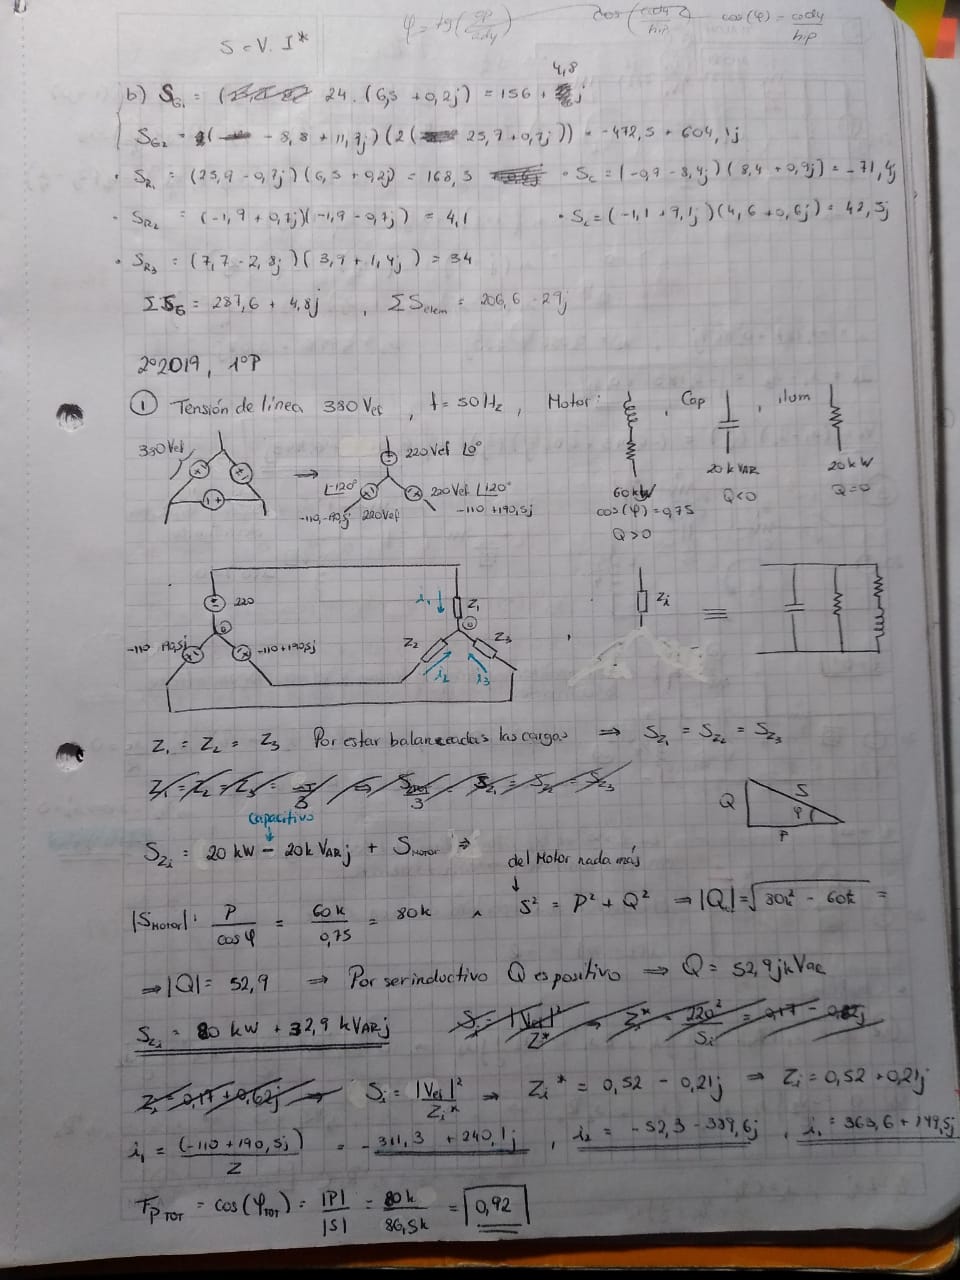 S = V. I*
φ = tg(op/ady) cos(cady/hip) cos(φ) = cady/hip
b) SG1 = 24. (6,5 + 0,2j) = 156 + 4,8j
SG2 = (-8,8 + 11,7j)(2( 25,9 + 0,7j)) = -472,5 + 604,1j
· SR1 = (25,9 - 0,7j)(6,5 + 0,2j) = 168,5 · Sc = (-0,9 - 8,4j)(8,4 + 0,9j) = -71,4j
· SR2 = (-1,9 + 0,7j)(-1,9 - 0,7j) = 4,1 · SL = (-1,1 + 9,1j)(4,6 + 0,6j) = 42,5j
· SR3 = (7,7 - 2,8j)(3,9 + 1,4j) = 34
ΣSG = 287,6 + 4,8j , ΣSelem = 206,6 - 29j
2º2019, 1ºP
① Tensión de línea 380 Vef , f = 50Hz , Motor: , Cap , ilum
380 Vef → 220 Vef ∠0°
∠120° 220 Vef ∠120°
-110-190,5j 220Vef -110 +190,5j
60kW 20 kVAR 20 kW
cos(φ) = 0,75 Q<0 Q=0
Q>0
220 i1 Z1 Zi ≡
0 0
-110 190,5j -110+190,5j Z2 Z3
i2 i3
Z1 = Z2 = Z3 Por estar balanceadas las cargas ⇒ SZ1 = SZ2 = SZ3
Q S φ P
capacitivo
SZi = 20 kW - 20k VARj + SMotor ⇒
del Motor nada más
|SMotor|: P/cosφ = 60k/0,75 = 80k ∧ S² = P² + Q² ⇒ |Q| = √(80k² - 60k²) =
⇒ |Q| = 52,9 ⇒ Por ser inductivo Q es positivo ⇒ Q = 52,9jkVar
SZi = 80 kW + 32,9 kVARj
Si = |Vef|²/Zi* ⇒ Zi* = 0,52 - 0,21j ⇒ Zi = 0,52 + 0,21j
i1 = (-110 + 190,5j)/Z = -311,3 + 240,1j , i2 = -52,3 - 339,6j , i1 = 363,6 + 149,5j
FPTOT = cos(φTOT) = |P|/|S| = 80k/86,5k = 0,92